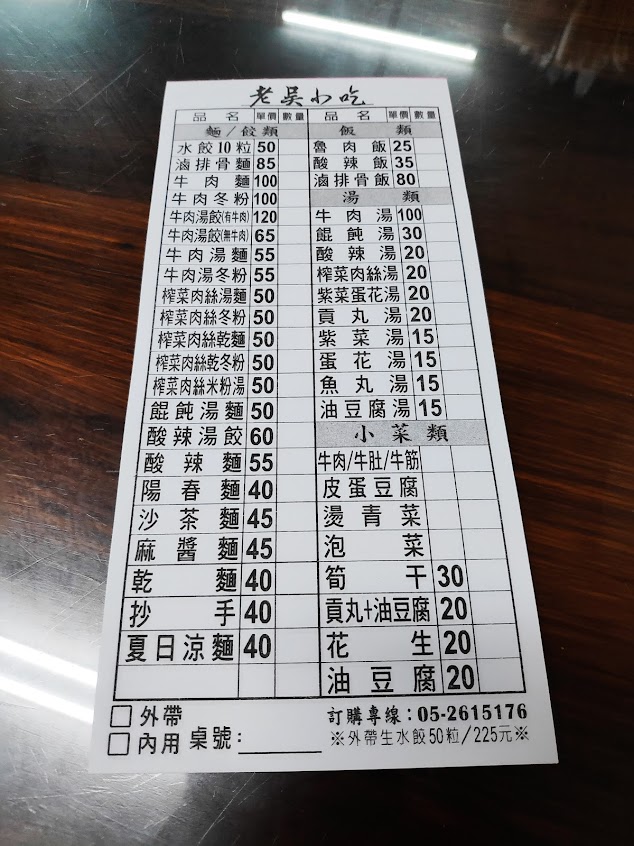 老吳小吃
品名 單價 數量 品名 單價 數量
麵/餃類
水餃10粒 50
滷排骨麵 85
牛肉麵 100
牛肉冬粉 100
牛肉湯餃(有牛肉) 120
牛肉湯餃(無牛肉) 65
牛肉湯麵 55
牛肉湯冬粉 55
榨菜肉絲湯麵 50
榨菜肉絲冬粉 50
榨菜肉絲乾麵 50
榨菜肉絲乾冬粉 50
榨菜肉絲米粉湯 50
餛飩湯麵 50
酸辣湯餃 60
酸辣麵 55
陽春麵 40
沙茶麵 45
麻醬麵 45
乾麵 40
抄手 40
夏日涼麵 40
飯類
魯肉飯 25
酸辣飯 35
滷排骨飯 80
湯類
牛肉湯 100
餛飩湯 30
酸辣湯 20
榨菜肉絲湯 20
紫菜蛋花湯 20
貢丸湯 20
紫菜湯 15
蛋花湯 15
魚丸湯 15
油豆腐湯 15
小菜類
牛肉/牛肚/牛筋
皮蛋豆腐
燙青菜
泡菜
筍干 30
貢丸+油豆腐 20
花生 20
油豆腐 20
□外帶
□內用 桌號:
訂購專線:05-2615176
※外帶生水餃50粒/225元※